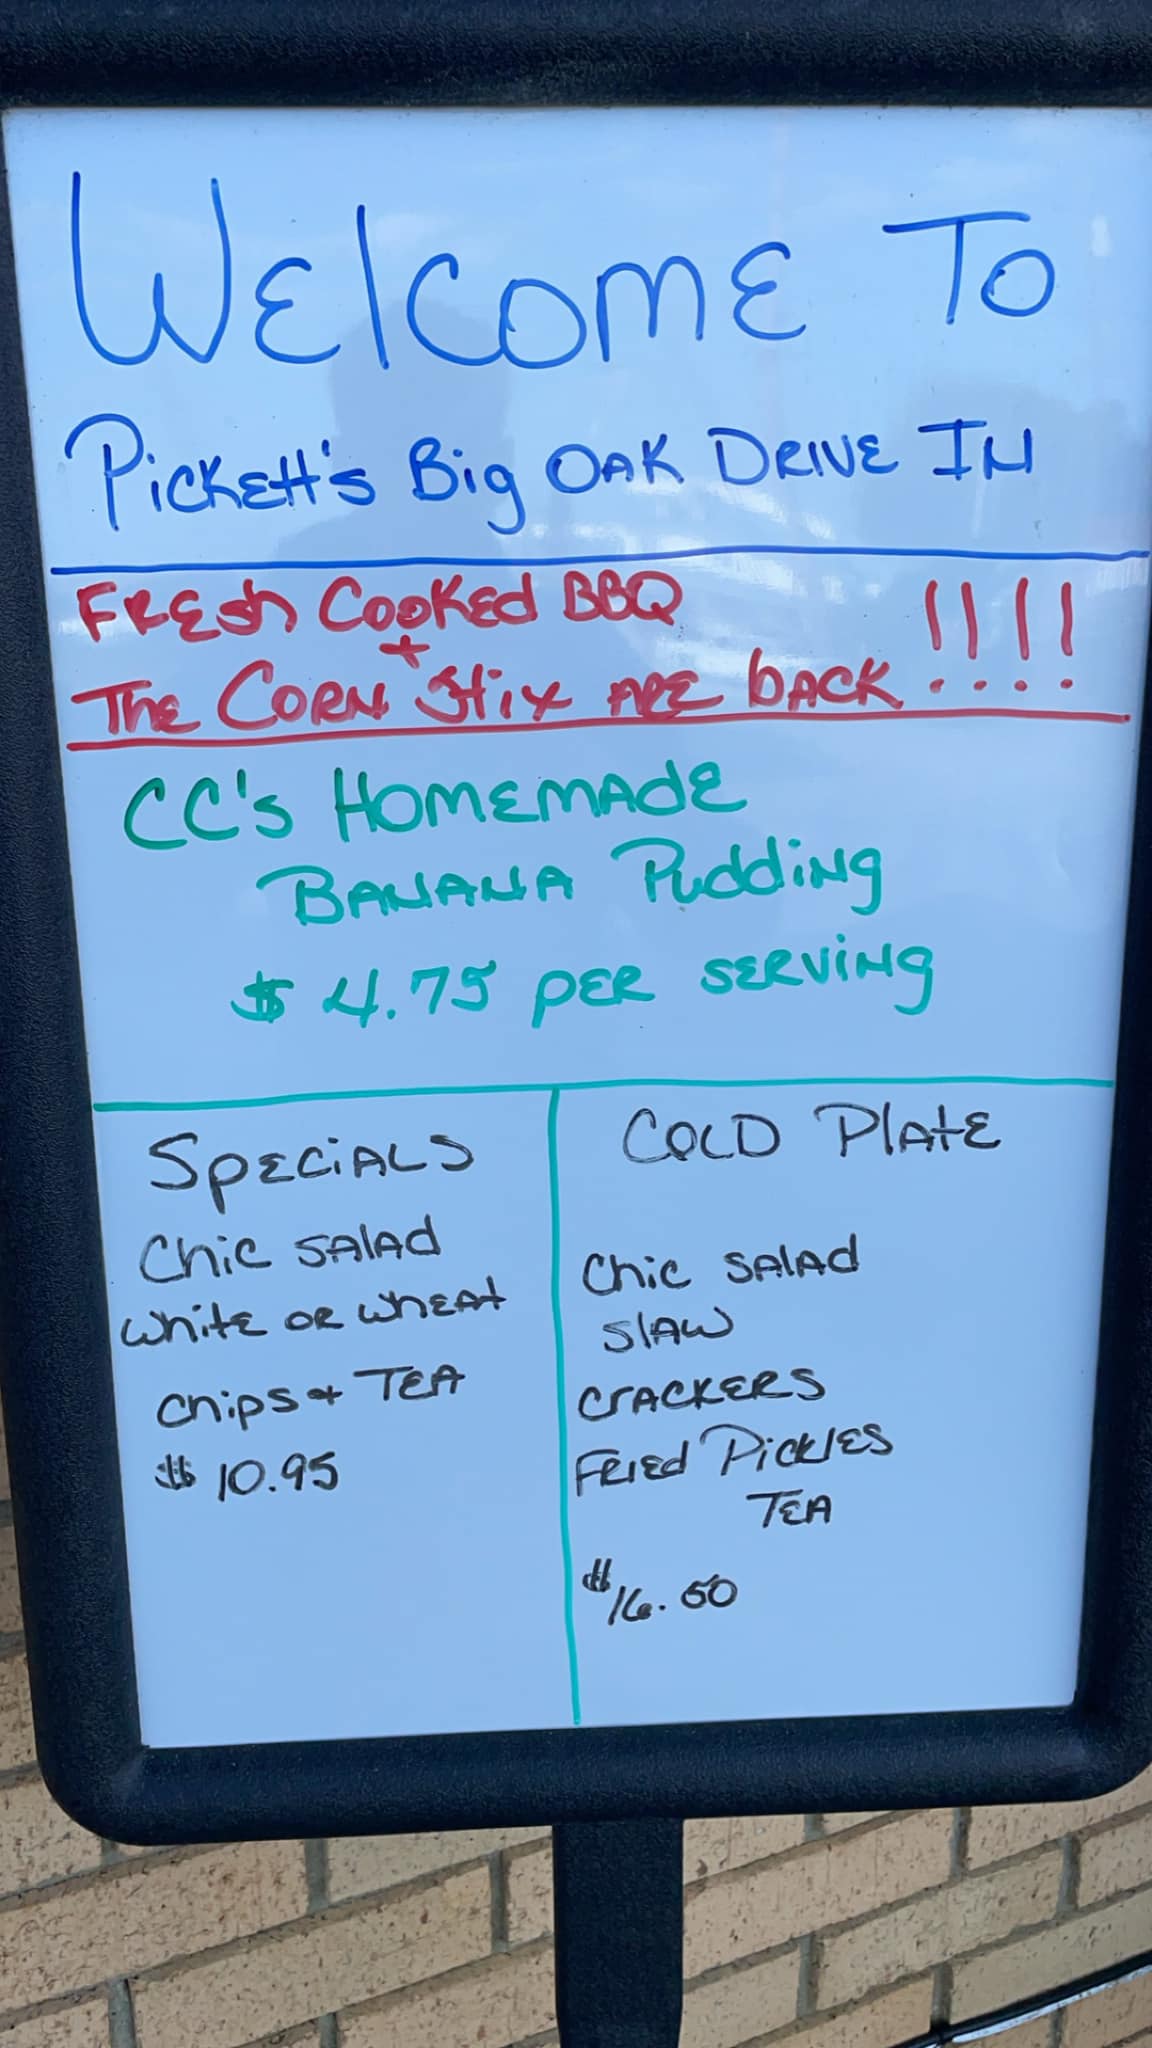 WELCOME TO
PICKETT'S Big OAK DRIVE IN
FRESh COOKEd BBQ
+
ThE CORN Stix ARE bACK !!!!
CC'S HOMEMAdE
BANANA PuddiNg
$4.75 PER SERViNg
SPECiALS
Chic SALAd
WhitE OR WhEAt
Chips + TEA
$10.95
COLD PLAtE
Chic SALAd
SLAW
CRACKERS
FRIEd PicklES
TEA
$16.50